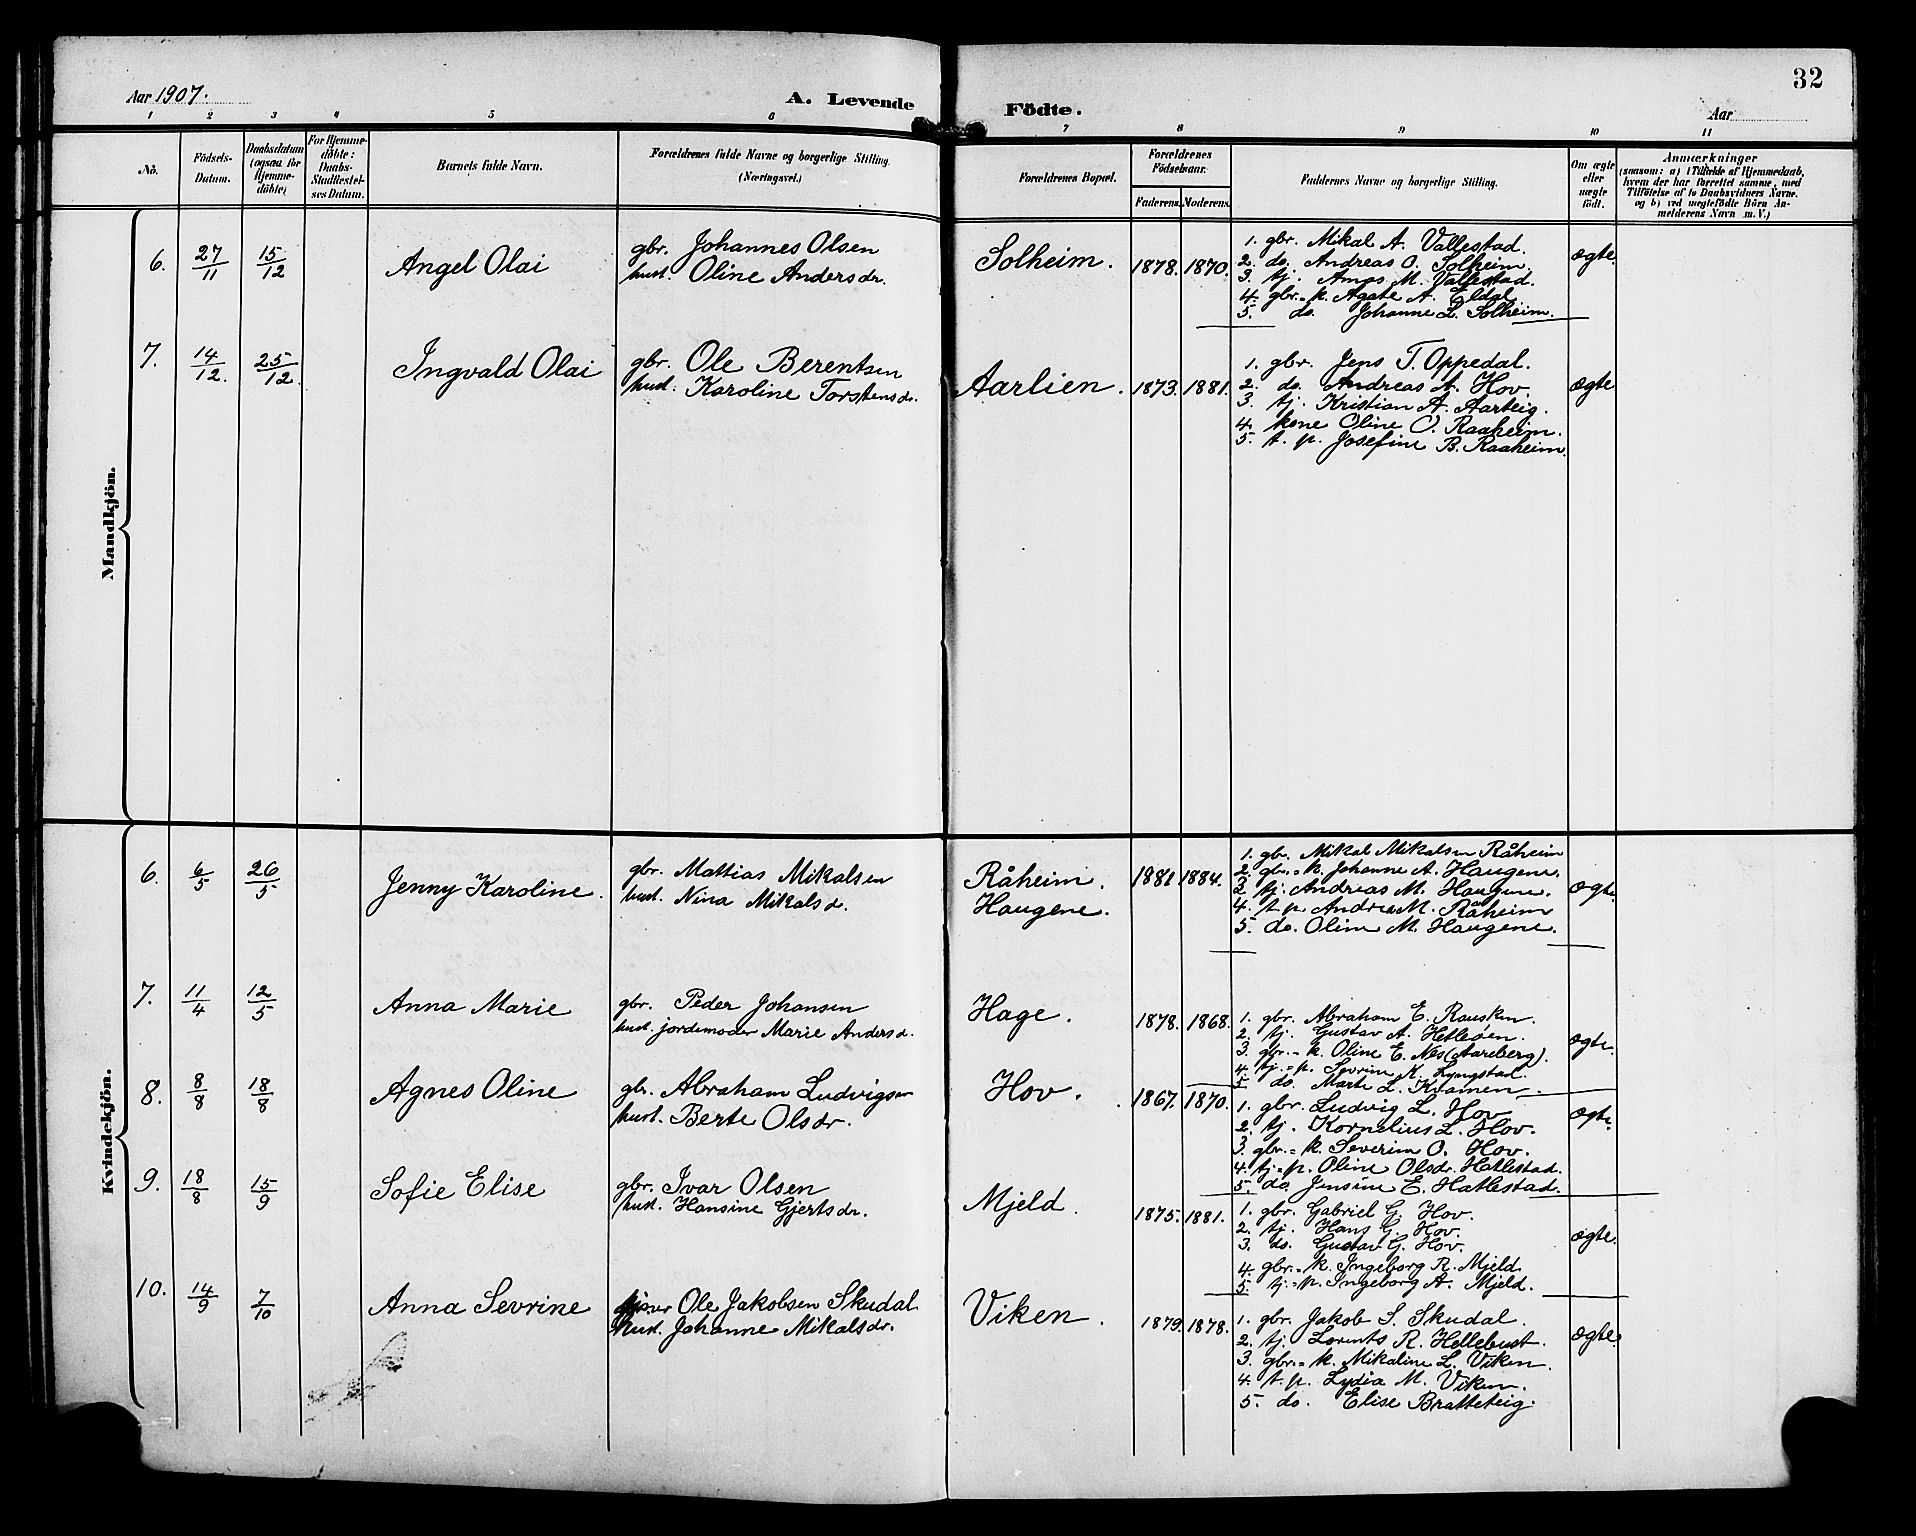 32
Aar 1907.
A. Levende Födte.
Aar
1 2 3 4 5 6 7 8 9 10 11
No.
Födsels-Datum.
Daabsdatum (ogsaa for Hjemme-döbte)
For Hjemme-döbte: Daabs-Stadfæstel-ses Datum.
Barnets fulde Navn.
Forældrenes fulde Navne og borgerlige Stilling. (Næringsvei.)
Forældrenes Bopæl.
Forældrenes Födselsaar.
Faderens. Moderens.
Faddernes Navne og borgerlige Stilling.
Om ægte eller uægte födt.
Anmærkninger
(saasom: a) i Tilfælde af Hjemmedaab,
hvem der har forrettet samme, med
Tilföielse af to Daabsvidners Navne.
og b) ved uægtefödte Börn An-
melderens Navn m. V.)
Mandkjön.
6. 27/11 15/12 Angel Olai
gbr. Johannes Olsen
hust. Oline Andersdr.
Solheim. 1878. 1870.
1. gbr. Mikal A. Vallestad.
2. do. Andreas O. Solheim.
3. tj. Amos M. Vallestad.
4. gbr.=k. Agate A. Eldal
5. do. Johanne L. Solheim.
ægte.
7. 14/12. 25/12. Ingvald Olai
gbr. Ole Berentsen
hust. Karoline Torstensdr.
Aarlien. 1873. 1881.
1. gbr. Jens T. Oppedal.
2. do. Andreas A. Hov.
3. tj. Kristian A. Aarteig.
4. kone Oline O. Raaheim.
5. t. p. Josefine B. Raaheim.
ægte
Kvindekjön.
6. 6/5 26/5 Jenny Karoline.
gbr. Mattias Mikalsen
hust. Nina Mikalsdr.
Råheim.
Haugene.
1881 1884.
1. gbr. Mikal Mikalsen Råheim
2. gbr.=k. Johanne A. Haugene.
3. tj. Andreas M. Haugene.
4. t. p. Andrea M. Råheim
5. do. Oline M. Haugene.
ægte.
7. 11/4 12/5 Anna Marie
gbr. Peder Johansen
hust. jordemoder Marie Andersd.
Hage. 1878. 1868.
1. gbr. Abraham E. Rausken.
2. tj. Gustav A. Hetleøen.
3. gbr.=k. Oline E. Nes (Aareberg).
4. tj.=p. Sevrine K. Lyngstad.
5. do. Marte L. Kvamen.
ægte.
8. 8/8 18/8 Agnes Oline
gbr. Abraham Ludvigsen
hust. Berte Olsdr.
Hov. 1867. 1870.
1. gbr. Ludvig L. Hov
2. tj. Kornelius L. Hov.
3. gbr.=k. Severine O. Hov.
4. tj.=p. Oline Olsdr. Hatlestad.
5. do. Jensine E. Hatlestad.
ægte.
9. 18/8 15/9 Sofie Elise
gbr. Ivar Olsen
hust. Hansine Gjertsdr.
Mjeld. 1875. 1881.
1. gbr. Gabriel G. Hov.
2. tj. Hans G. Hov.
3. do. Gustav G. Hov.
4. gbr.=k. Ingeborg R. Mjeld
5. tj.=p. Ingeborg A. Mjeld.
ægte.
10. 14/9 7/10 Anna Sevrine
Ole Jakobsen Skudal
hust. Johanne Mikalsdr.
Viken. 1879. 1878.
1. gbr. Jakob S. Skudal.
2. tj. Lorents R. Hellebust.
3. gbr.=k. Mikaline L. Viken.
4. t. p. Lydia M. Viken.
5. do. Elise Bratteteig.
ægte.